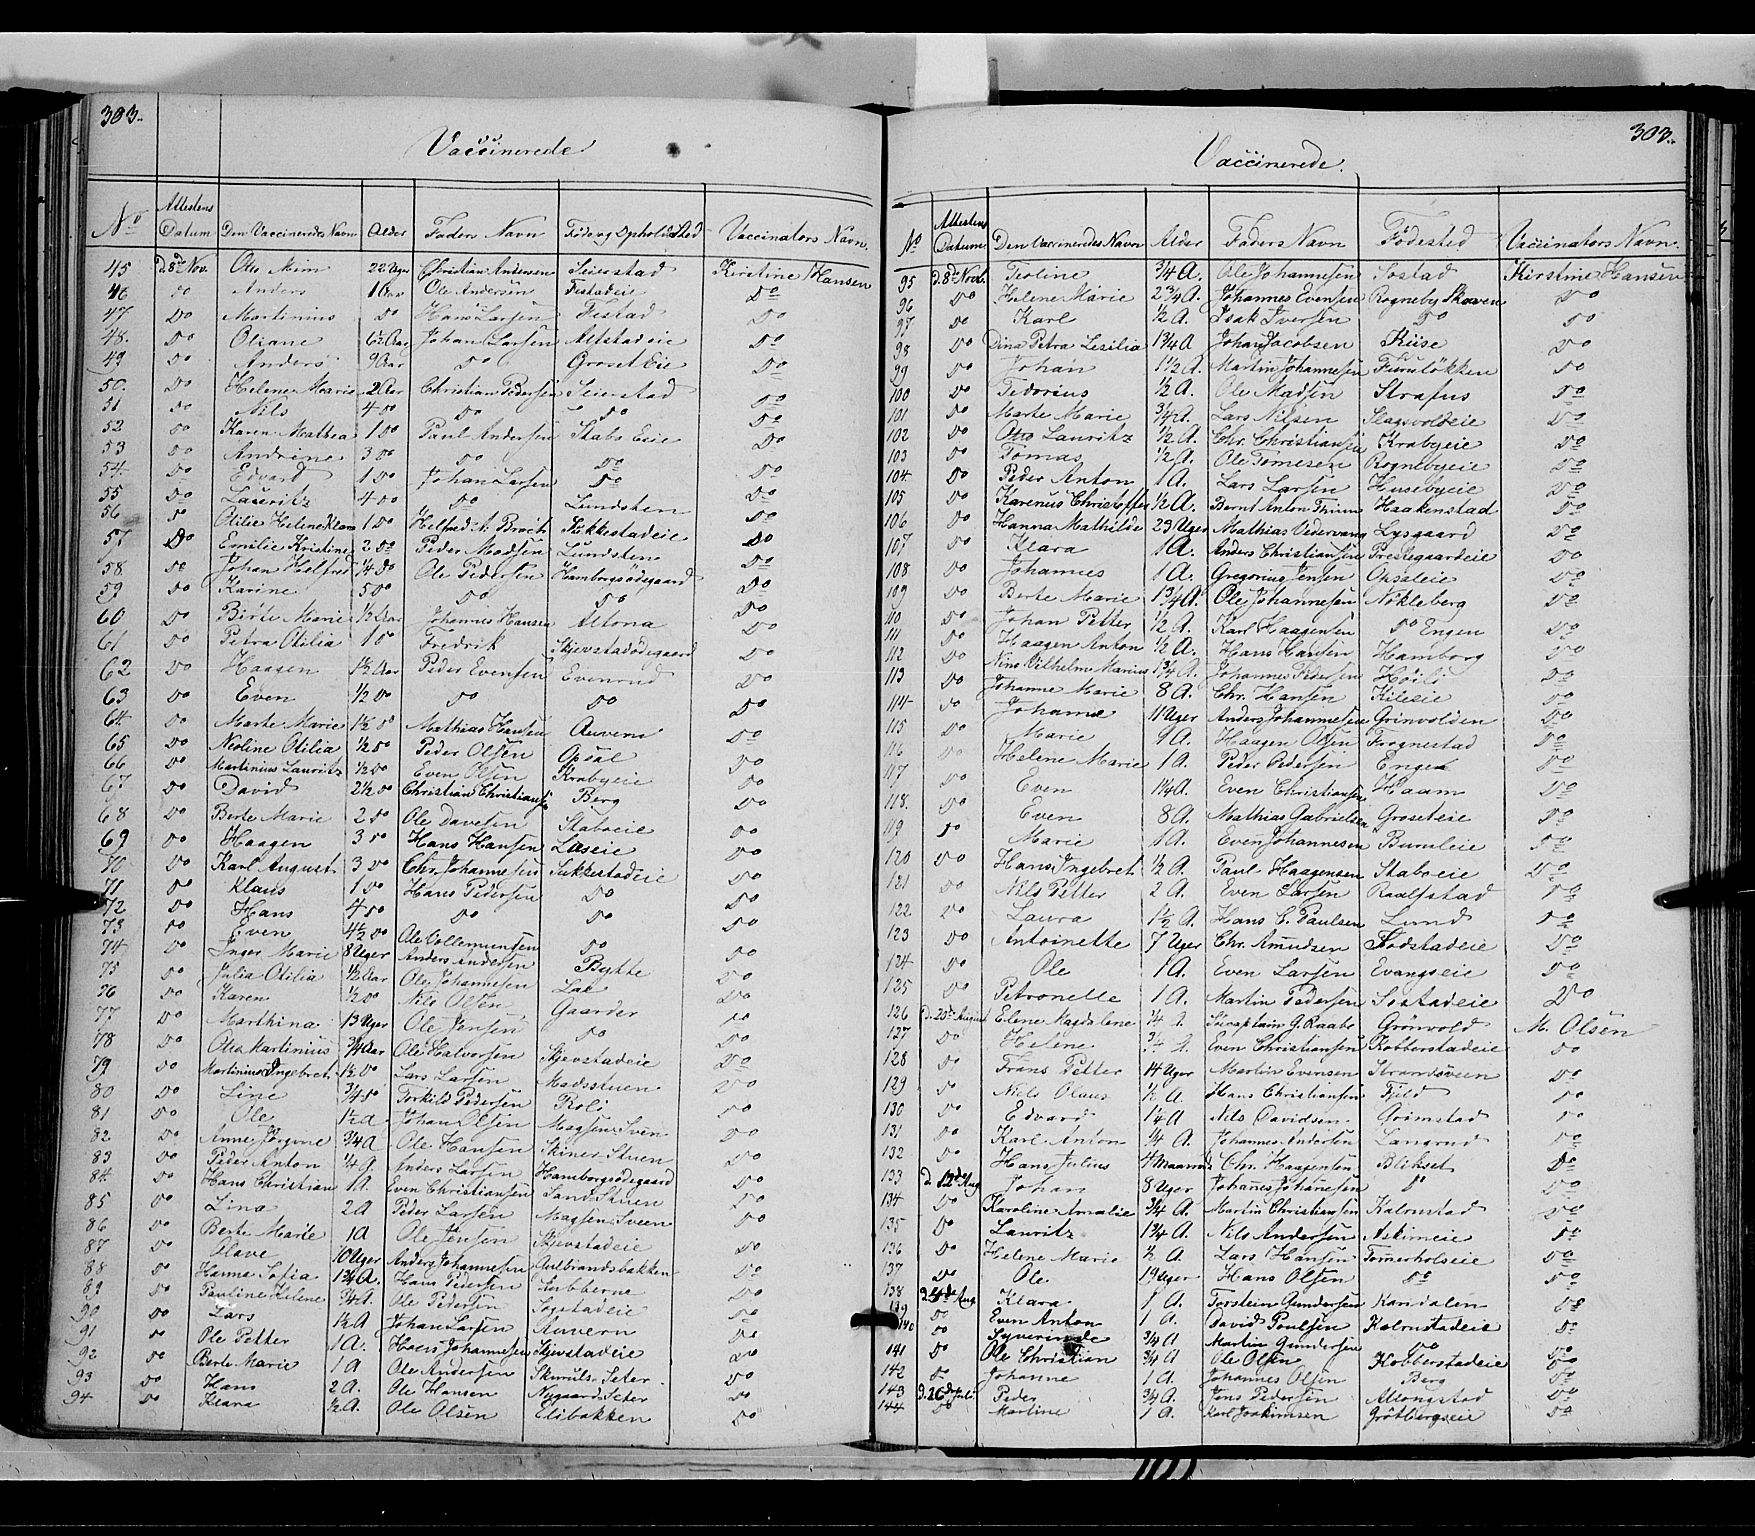 303.
Vaccinerede
No Attestens Datum Den Vaccineredes Navn Alder Faders Navn Føde og Opholds Sted Vaccinators Navn.
45 d. 8de Nov. Otto Christian Andersen Seierstad Kirstine Hansen
46 do Anders 1 Aar Ole Andersen Festadeie do
47 do Martinius do Hans Larsen Festad do
48. do Oliane 6½ Aar Johan Larsen Alstadeie do
49 do Anders 9 Aar do Groset Eie do
50. do Helene Marie 2 Aar Christian Pedersen Seierstad do
51 do Nils 4 do do do do
52 do Karen Mathea 1 do Paul Andersen Stabo Eie do
53 do Andrine 3 do do do do
54 do Edvard 1 do Johan Larsen do do
55 do Lauritz 4 do do Lundsten do
56 do Otilie Helene 1 do Brock Søkkestadeie do
57 do Emilie Kristine 2 do Peder Madsen Lundsten do
58 do Johan Helfred ¼ do Ole Pedersen Hamborgsødegaard do
59 do Karine 5 do do do do
60 do Birte Marie 1½ Aar Johannes Hansen Altona do
61 do Petra Otilia 1 do Fredrik Skjevstadødegaard do
62 do Haagen 1½ Aar Peder Evensen Evenrud do
63 do Even ½ do do do do
64 do Marte Marie 1½ do Mathias Hansen Auvern do
65 do Neoline Otilia ½ do Peder Olsen Opsal do
66 do Martinius Lauritz ½ do Even Olsen Krabyeie do
67 do David 2½ do Christian Christiansen Berg do
68 do Berte Marie 2 do Ole Davesen Staboeie do
69 do Haagen 3 do Hans Hansen Laseie do
70 do Karl August 3 do Chr. Johannesen Sukkestadeie do
71 do Klaus 1 do Hans Pedersen do do
72 do Hans 4 do do do do
73 do Even 4½ do Ole Vollemundsen do do
74 do Inger Marie 8 Uger Anders Andersen Bytte do
75 do Julia Otilia ½ Aar Ole Johannesen Lae do
76 do Karen ½ do Nils Olsen Gaarder do
77 do Marthina 13 Uger Ole Jensen do do
78 do Otto Martinius ¾ Aar Ole Halvorsen Skjevstadeie do
79 do Martinius Ingebret 1½ do Lars Larsen Madsstuen do
80 do Line ¾ do Torkild Pedersen Roli do
81 do Ole 1½ A Johan Olsen Magsens Sven do
82 do Anne Jørgine ¾ A Ole Hansen Skiner Stuen do
83 do Peder Anton ¼ A Anders Larsen Hamborgsødegaard do
84. do Hans Christian 1 A. Even Christiansen Sand Stuen do
85 do Lina 2 A Peder Larsen Magsens Sveen do
86 do Berte Marie 1 A Ole Jensen Skjevstadeie do
87 do Olave 10 Uger Anders Johannesen Gulbrandsbakken do
88 do Hanna Sofia 1¾ A. Hans Pedersen Snibberna do
89 do Pauline Helene ¾ A. Ole Pedersen Sogstadeie do
90 do Lars 1½ A Johan Larsen Auvern do
91 do Ole Petter 1 A. Hans Johannesen Skjevstadeie do
92 do Berte Marie 1 A Ole Andersen Skruds Seter do
93 do Hans 2 A. Ole Hansen Nygaard Seter do
94 do Klara ½ A. Ole Olsen Elibakken do
303.
Vaccinerede.
No Attestens Datum Den Vaccineredes Navn Alder Faders Navn Fødested Vaccinators Navn.
95 d. 8de Novb. Teoline ¾ A. Ole Johannesen Sostad Kirstine Hansen
96 do Helene Marie 2¾ A. Johannes Evensen Rogneby Skoven do
97 do Karl ½ A. Isak Iversen do do
98 do Dina Petra Lesilia 1¾ A Johan Jacobsen Kiise do
99 do Johan 1½ A. Martin Johannesen Furuløkken do
100 do Tidorius ½ A. Ole Madsen Strafus do
101 do Marte Marie ¾ A. Lars Nilsen Slagsvoldeie do
102 do Otto Lauritz ½ A. Chr. Christiansen Krabyeie do
103 do Tomas ½ A. Ole Tomesen Rognebyeie do
104 do Peder Anton 1 A. Lars Larsen Husebyeie do
105 do Karenus Christoffer ½ A. Bernt Anton Haakenstad do
106 do Hanna Mathilde 29 Uger Mathias Lysgaard do
107 do Klara 1 A. Anders Christiansen Prestegaardeie do
108 do Johannes 1 A. Gregorius Jensen Opsaleie do
109 do Berte Marie 1¾ A. Ole Johannesen Nøkleberg do
110 do Johan Petter ½ A. Karl Haagensen do Engen do
111 do Haagen Anton ½ A. Hans Hansen Hamborg do
112 do Nine Vilhelm Marius 1¾ A. Johannes Pedersen Høili do
113 do Johanne Marie 8 A. Chr. Hansen Kileie do
114 do Johanne 11 Uger Anders Johannesen Grinvolden do
115 do Marie 9 A. Haagen Olsen Frognestad do
116 do Helene Marie 1 A. Peder Pedersen Enget do
117 do Even 1¼ A. Even Christiansen Haam do
118. do Even 8 A. Mathias Gabrielsen Groseteie do
119 do Marie 1 A. Even Johannesen Buruleie do
120 do Hans Ingebret ½ A. Paul Haagensen Staboeie do
121 do Nils Petter 2 A. Even Larsen Raalfstad do
122 do Laura 1½ A. Hans C. Paulsen Lund do
123 do Antoinette 7 Uger Chr. Amudsen Fodstadeie do
124 do Ole 1 A. Even Larsen Evangseie do
125 do Petronelle 1 A. Martin Pedersen Sostadeie do
126 d. 20de August Elene Magdalene ¼ A. G. Raabe Grönvold M. Olsen
127 do Helene ¾ A. Even Christiansen Kobberstadeie do
128 do Frans Petter 14 Uger Martin Evensen Strandsveen do
129 do Niels Olaus ½ A Hans Christiansen Fjeld do
130 do Edvard 1¼ A Nils Davidsen Grimstad do
131 do Karl Anton ¼ A. Johannes Andersen Langrud do
132 do Hans Julius 4 Maaneder Chr. Haagensen Blikset do
133 d. 12de Aug Johan 8 Uger Johanes Johanesen do do
134 do Karoline Amalie ¾ A. Martin Christiansen Kolrustad do
135 do Lauritz 1¾ A. Nils Andersen Askimeie do
136 do Helene Marie ½ A. Lars Hansen Tomerholseie do
137 do Ole 19 Uger Hans Olsen do do
138 d. 24de Aug Klara 1 A. Torstein Gundersen Kandalen do
139 do Even Anton 1 A. David Poulsen Kolrustadeie do
140 do Syverinde ¾ A Martin Gundersen do do
141 do Ole Christian ¾ A Ole Olsen Kobberstadeie do
142 do Johanne 1 A. Johannes Olsen Berg do
143 d. 26de Juli Peder ¾ A. Jens Pedersen Allongstad do
144 do Martine 1 A. Karl Joakimsen Grötbergseie do